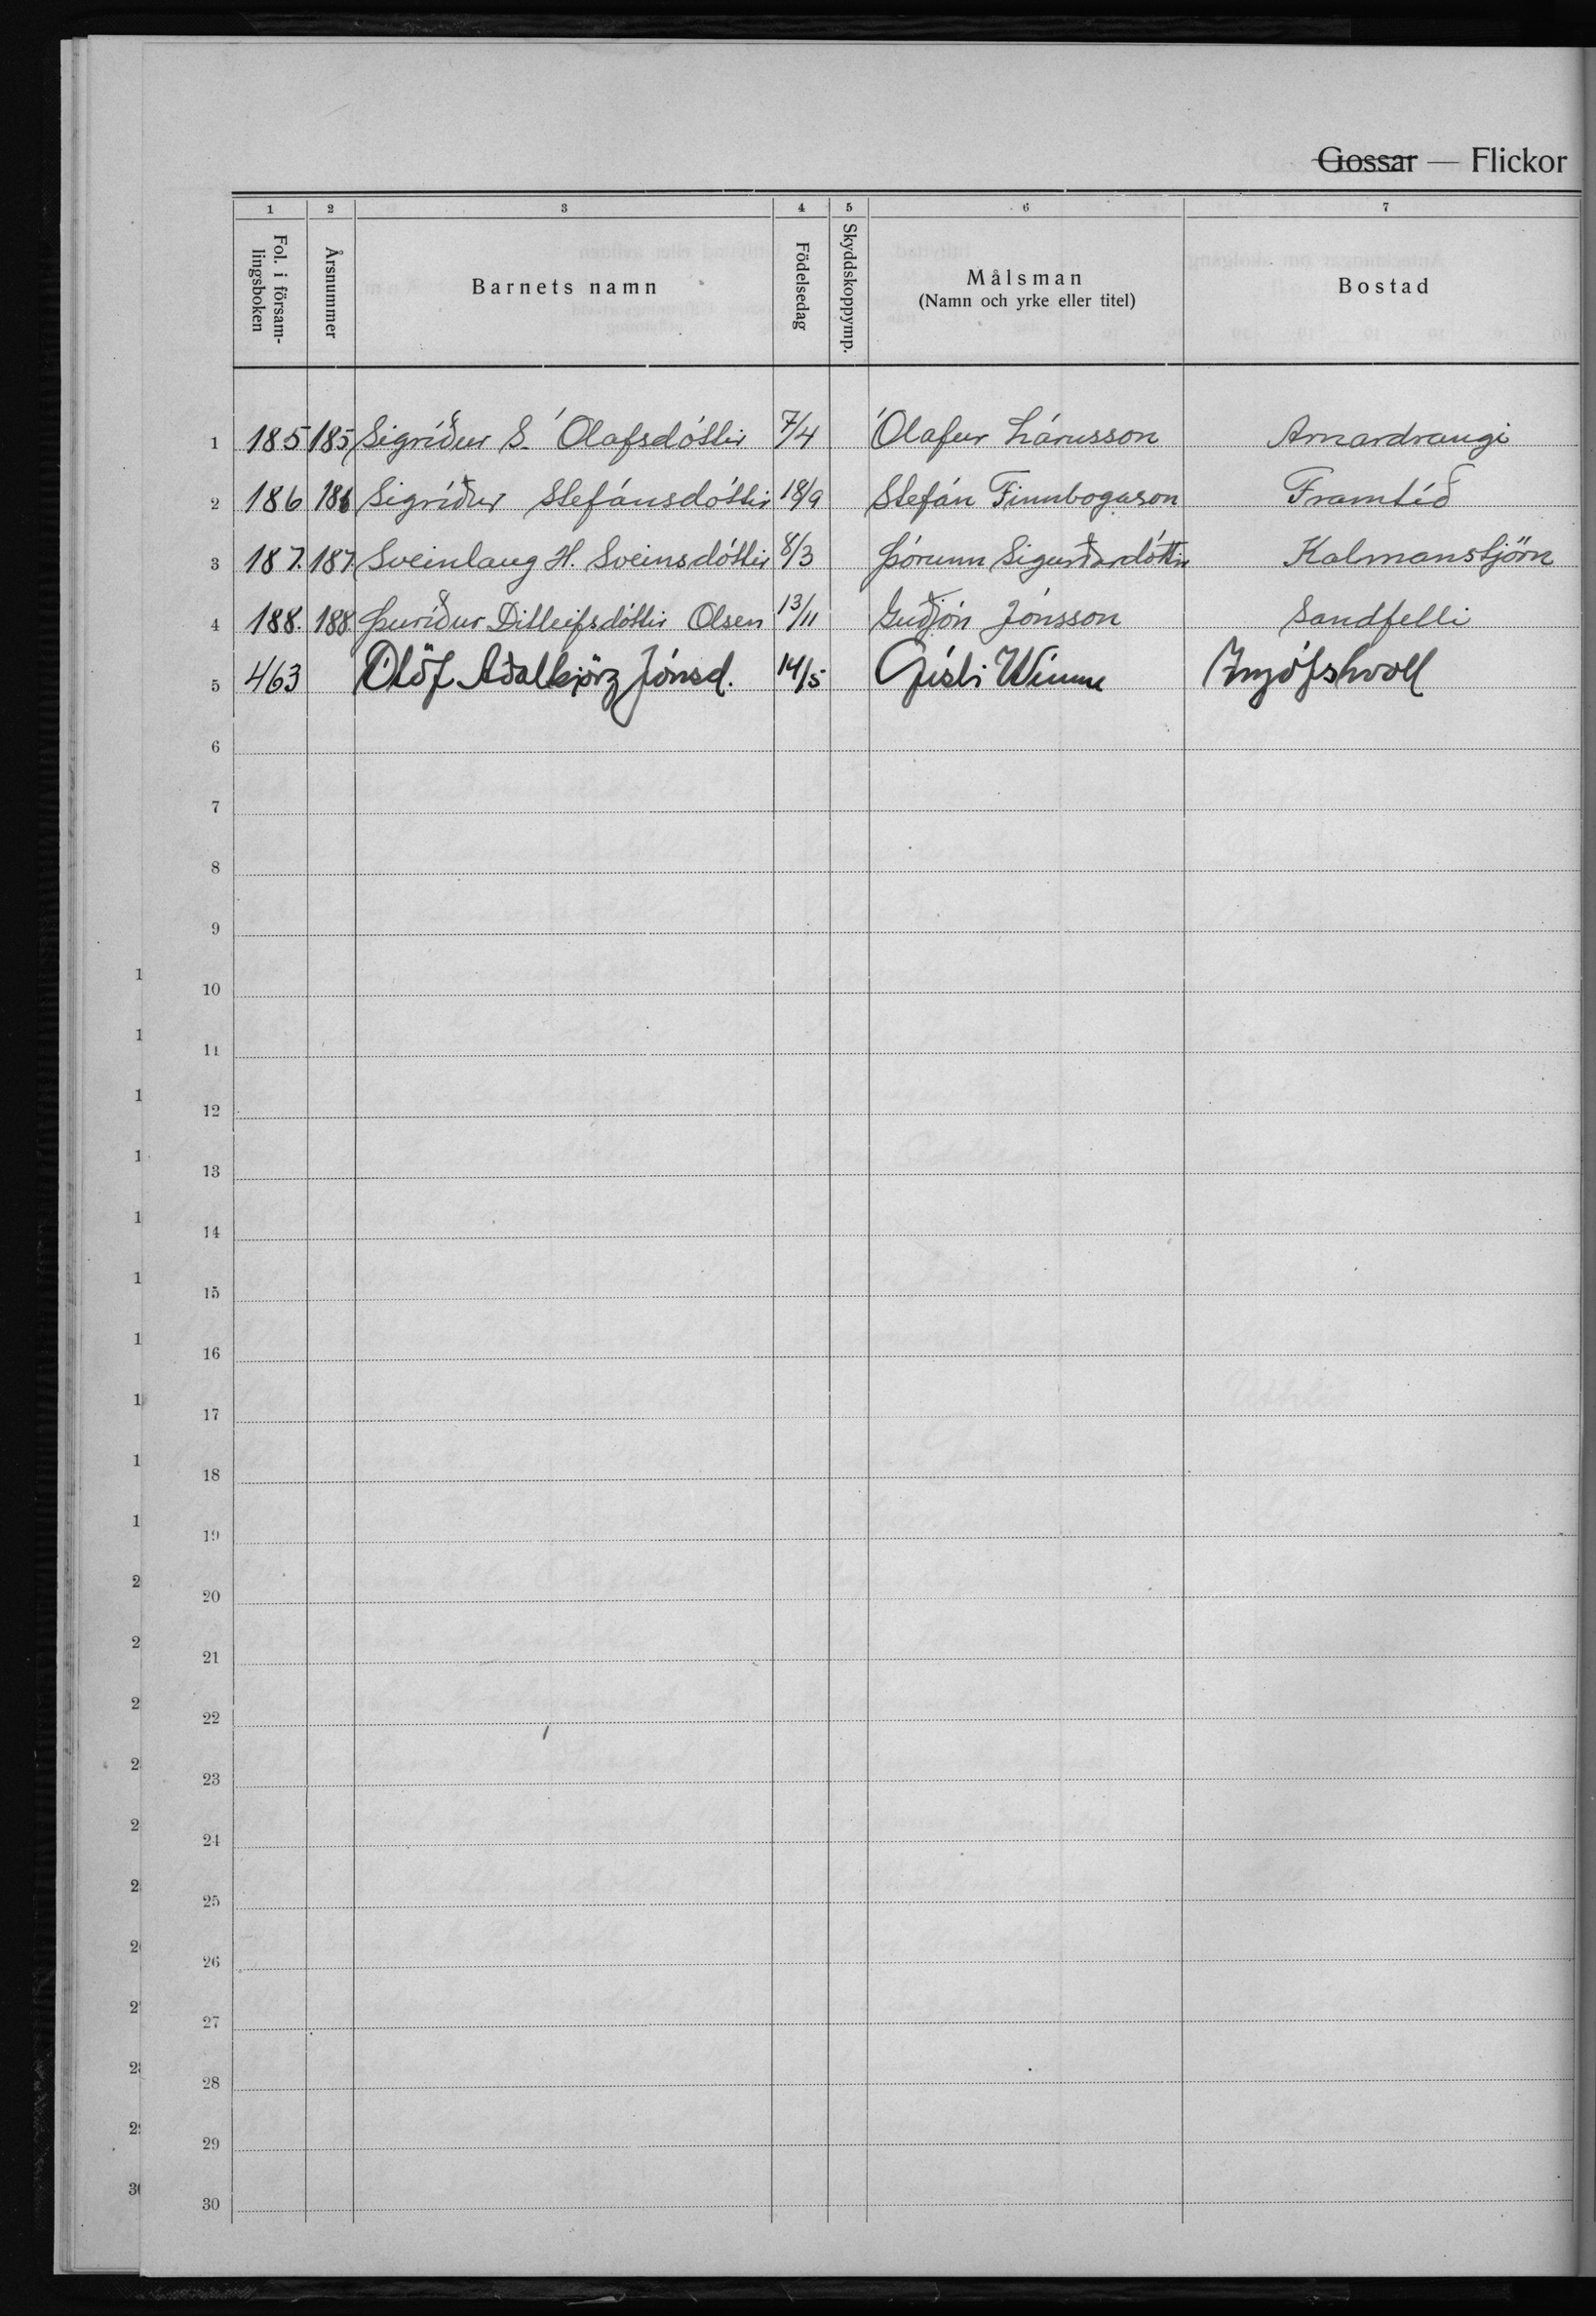 Gossar — Flickor
1 2 3 4 5 6 7
Fol. i försam-
lingsboken
Årsnummer
Barnets namn
Födelsedag
Skyddskoppymp.
Målsman
(Namn och yrke eller titel)
Bostad
1 185 185 Sigríður S. Ólafsdóttir 7/4 Ólafur Lárusson Arnardrangi
2 186 186 Sigríður Stefánsdóttir 18/9 Stefán Finnbogason Framtíð
3 187. 187. Sveinlaug H. Sveinsdóttir 8/3 Þórunn Sigurðardóttir Kalmanstjörn
4 188. 188 Þuríður Ditleifsdóttir Olsen 13/11 Guðjón Jónsson Sandfelli
5 463 Ólöf Aðalbjörg Jónsd. 14/5 Gísli
6
7
8
9
10
11
12
13
14
15
16
17
18
19
20
21
22
23
24
25
26
27
28
29
30